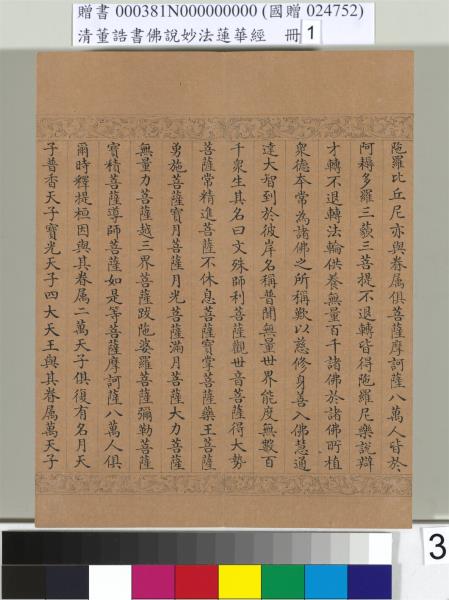 贈書 000381N000000000 (國贈 024752)
清董誥書佛說妙法蓮華經 冊 1
陁羅比丘尼亦與眷属俱菩薩摩訶薩八萬人皆於
阿耨多羅三藐三菩提不退轉皆得陁羅尼樂說辯
才轉不退轉法輪供養無量百千諸佛於諸佛所植
衆德本常為諸佛之所稱歎以慈修身善入佛慧通
達大智到於彼岸名稱普聞無量世界能度無數百
千衆生其名曰文殊師利菩薩觀世音菩薩得大勢
菩薩常精進菩薩不休息菩薩寶掌菩薩藥王菩薩
勇施菩薩寶月菩薩月光菩薩滿月菩薩大力菩薩
無量力菩薩越三界菩薩跋陁婆羅菩薩彌勒菩薩
寶積菩薩導師菩薩如是等菩薩摩訶薩八萬人俱
爾時釋提桓因與其眷属二萬天子俱復有名月天
子普香天子寶光天子四大天王與其眷属萬天子
3